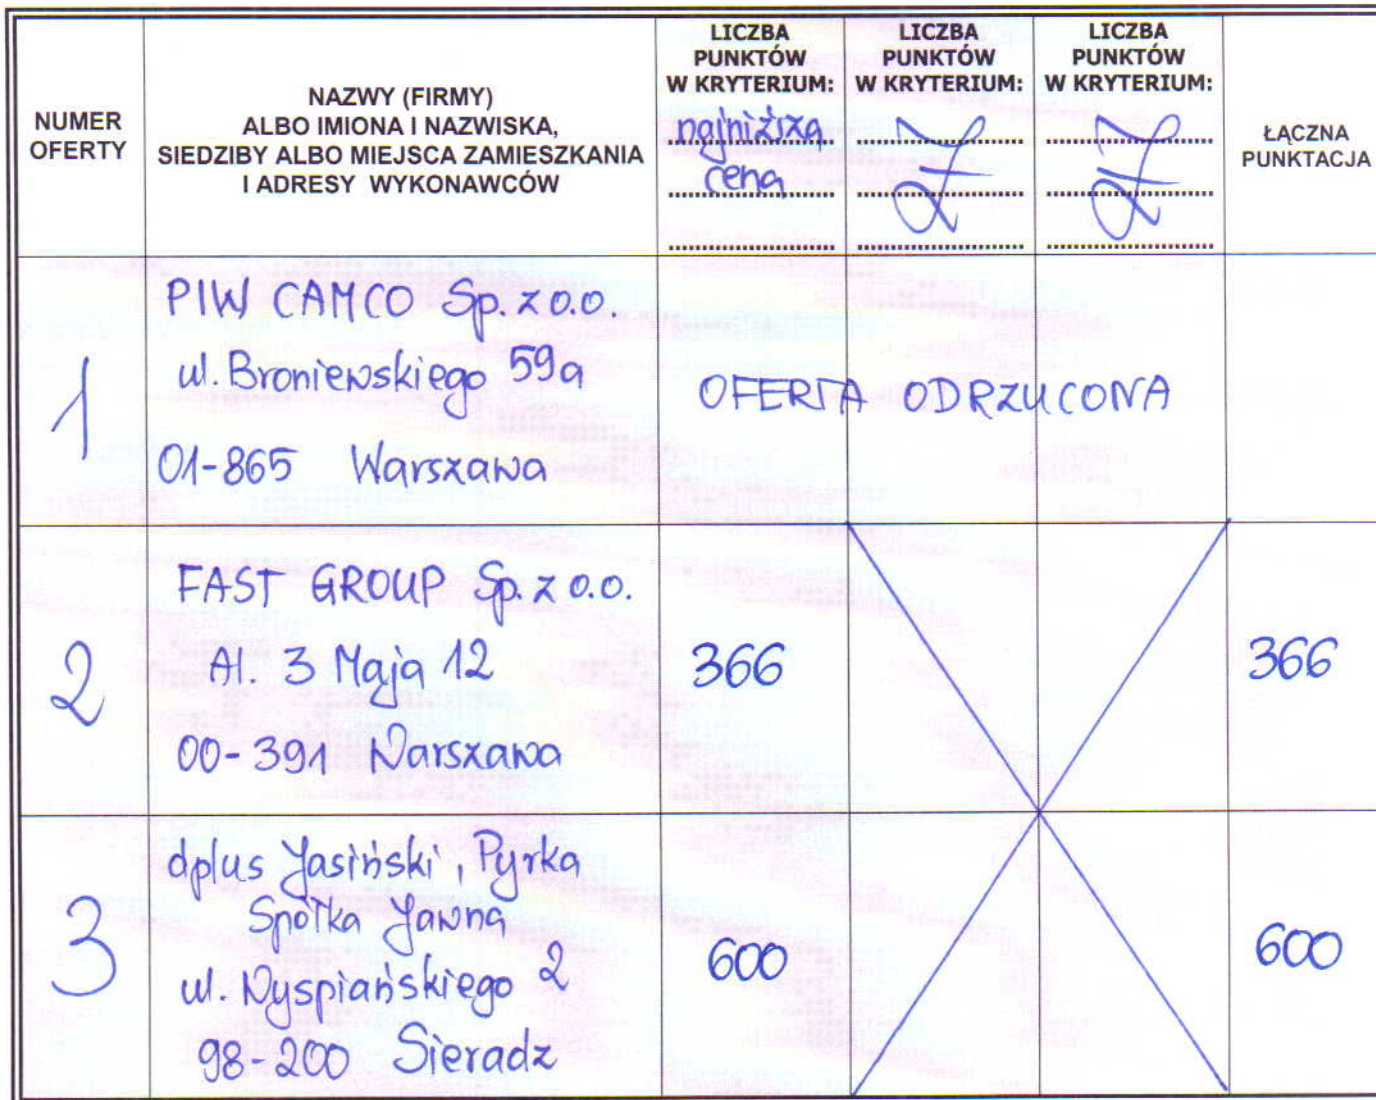 NUMER
OFERTY
NAZWY (FIRMY)
ALBO IMIONA I NAZWISKA,
SIEDZIBY ALBO MIEJSCA ZAMIESZKANIA
I ADRESY WYKONAWCÓW
LICZBA
PUNKTÓW
W KRYTERIUM:
najniższa
cena
LICZBA
PUNKTÓW
W KRYTERIUM:
LICZBA
PUNKTÓW
W KRYTERIUM:
ŁĄCZNA
PUNKTACJA
1
PIW CAMCO Sp. z o.o.
ul. Broniewskiego 59a
01-865 Warszawa
OFERTA ODRZUCONA
2
FAST GROUP Sp. z o.o.
Al. 3 Maja 12
00-391 Warszawa
366
366
3
dplus Jasiński, Pyrka
Spółka Jawna
ul. Wyspiańskiego 2
98-200 Sieradz
600
600